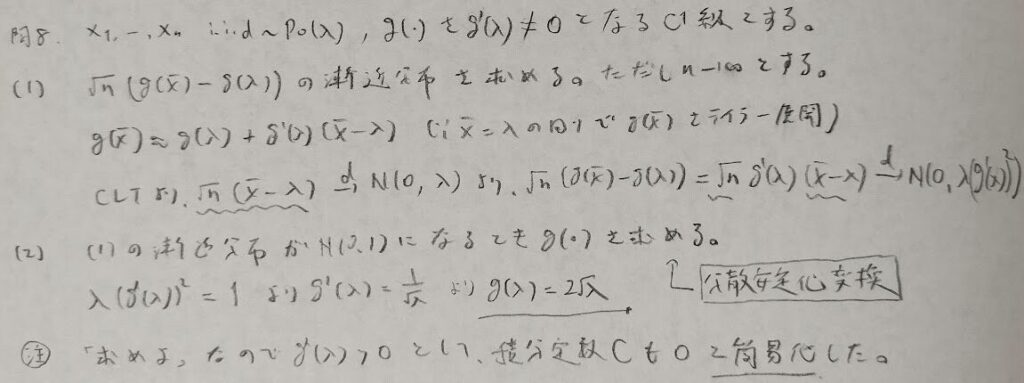 問8. X₁, -, Xₙ i.i.d ~ Po(λ), g(・)をg'(λ)≠0となるC¹級とする。
(1) √n (g(x̄) - g(λ)) の漸近分布を求める。ただしn→∞とする。
g(x̄) ≈ g(λ) + g'(λ)(x̄-λ) (∵ x̄=λの回りでg(x̄)をテイラー展開)
CLTより、√n (x̄-λ) →d N(0, λ) より、√n (g(x̄)-g(λ)) = √n g'(λ) (x̄-λ) →d N(0, λ(g'(λ))²)
(2) (1)の漸近分布がN(0,1)になるともg(・)を求める。
λ(g'(λ))² = 1 より g'(λ) = 1/√λ より g(λ) = 2√λ ↑ 分散安定化変換
注 「求めよ」なのでg'(λ)>0として、積分定数Cも0と簡易化した。